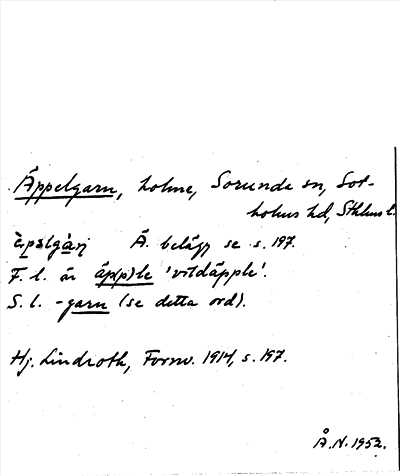 Äppelgarn, holme, Sorunda sn, Sot-
holms hd, Sthlms l.
Ä. belägg se s. 197.
F. l. är äp(p)le 'vildäpple'.
S. l. -garn (se detta ord).
Hj. Lindroth, Fornv. 1914, s. 197.
Å.N. 1952.